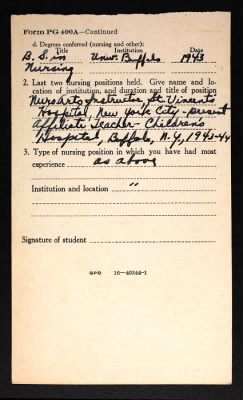 Form PG 400A—Continued
d. Degrees conferred (nursing and other):
Title Institution Date
B. S. in Univ. Buffalo 1943
Nursing
2. Last two nursing positions held. Give name and lo-
cation of institution, and duration and title of position
Nurs. Arts Instructor, St. Vincent's
Hospital, New York City - present
Affiliate Teacher - Children's
Hospital, Buffalo, N.Y., 1943-44
3. Type of nursing position in which you have had most
experience as above
Institution and location "
Signature of student
GPO 16-40344-1